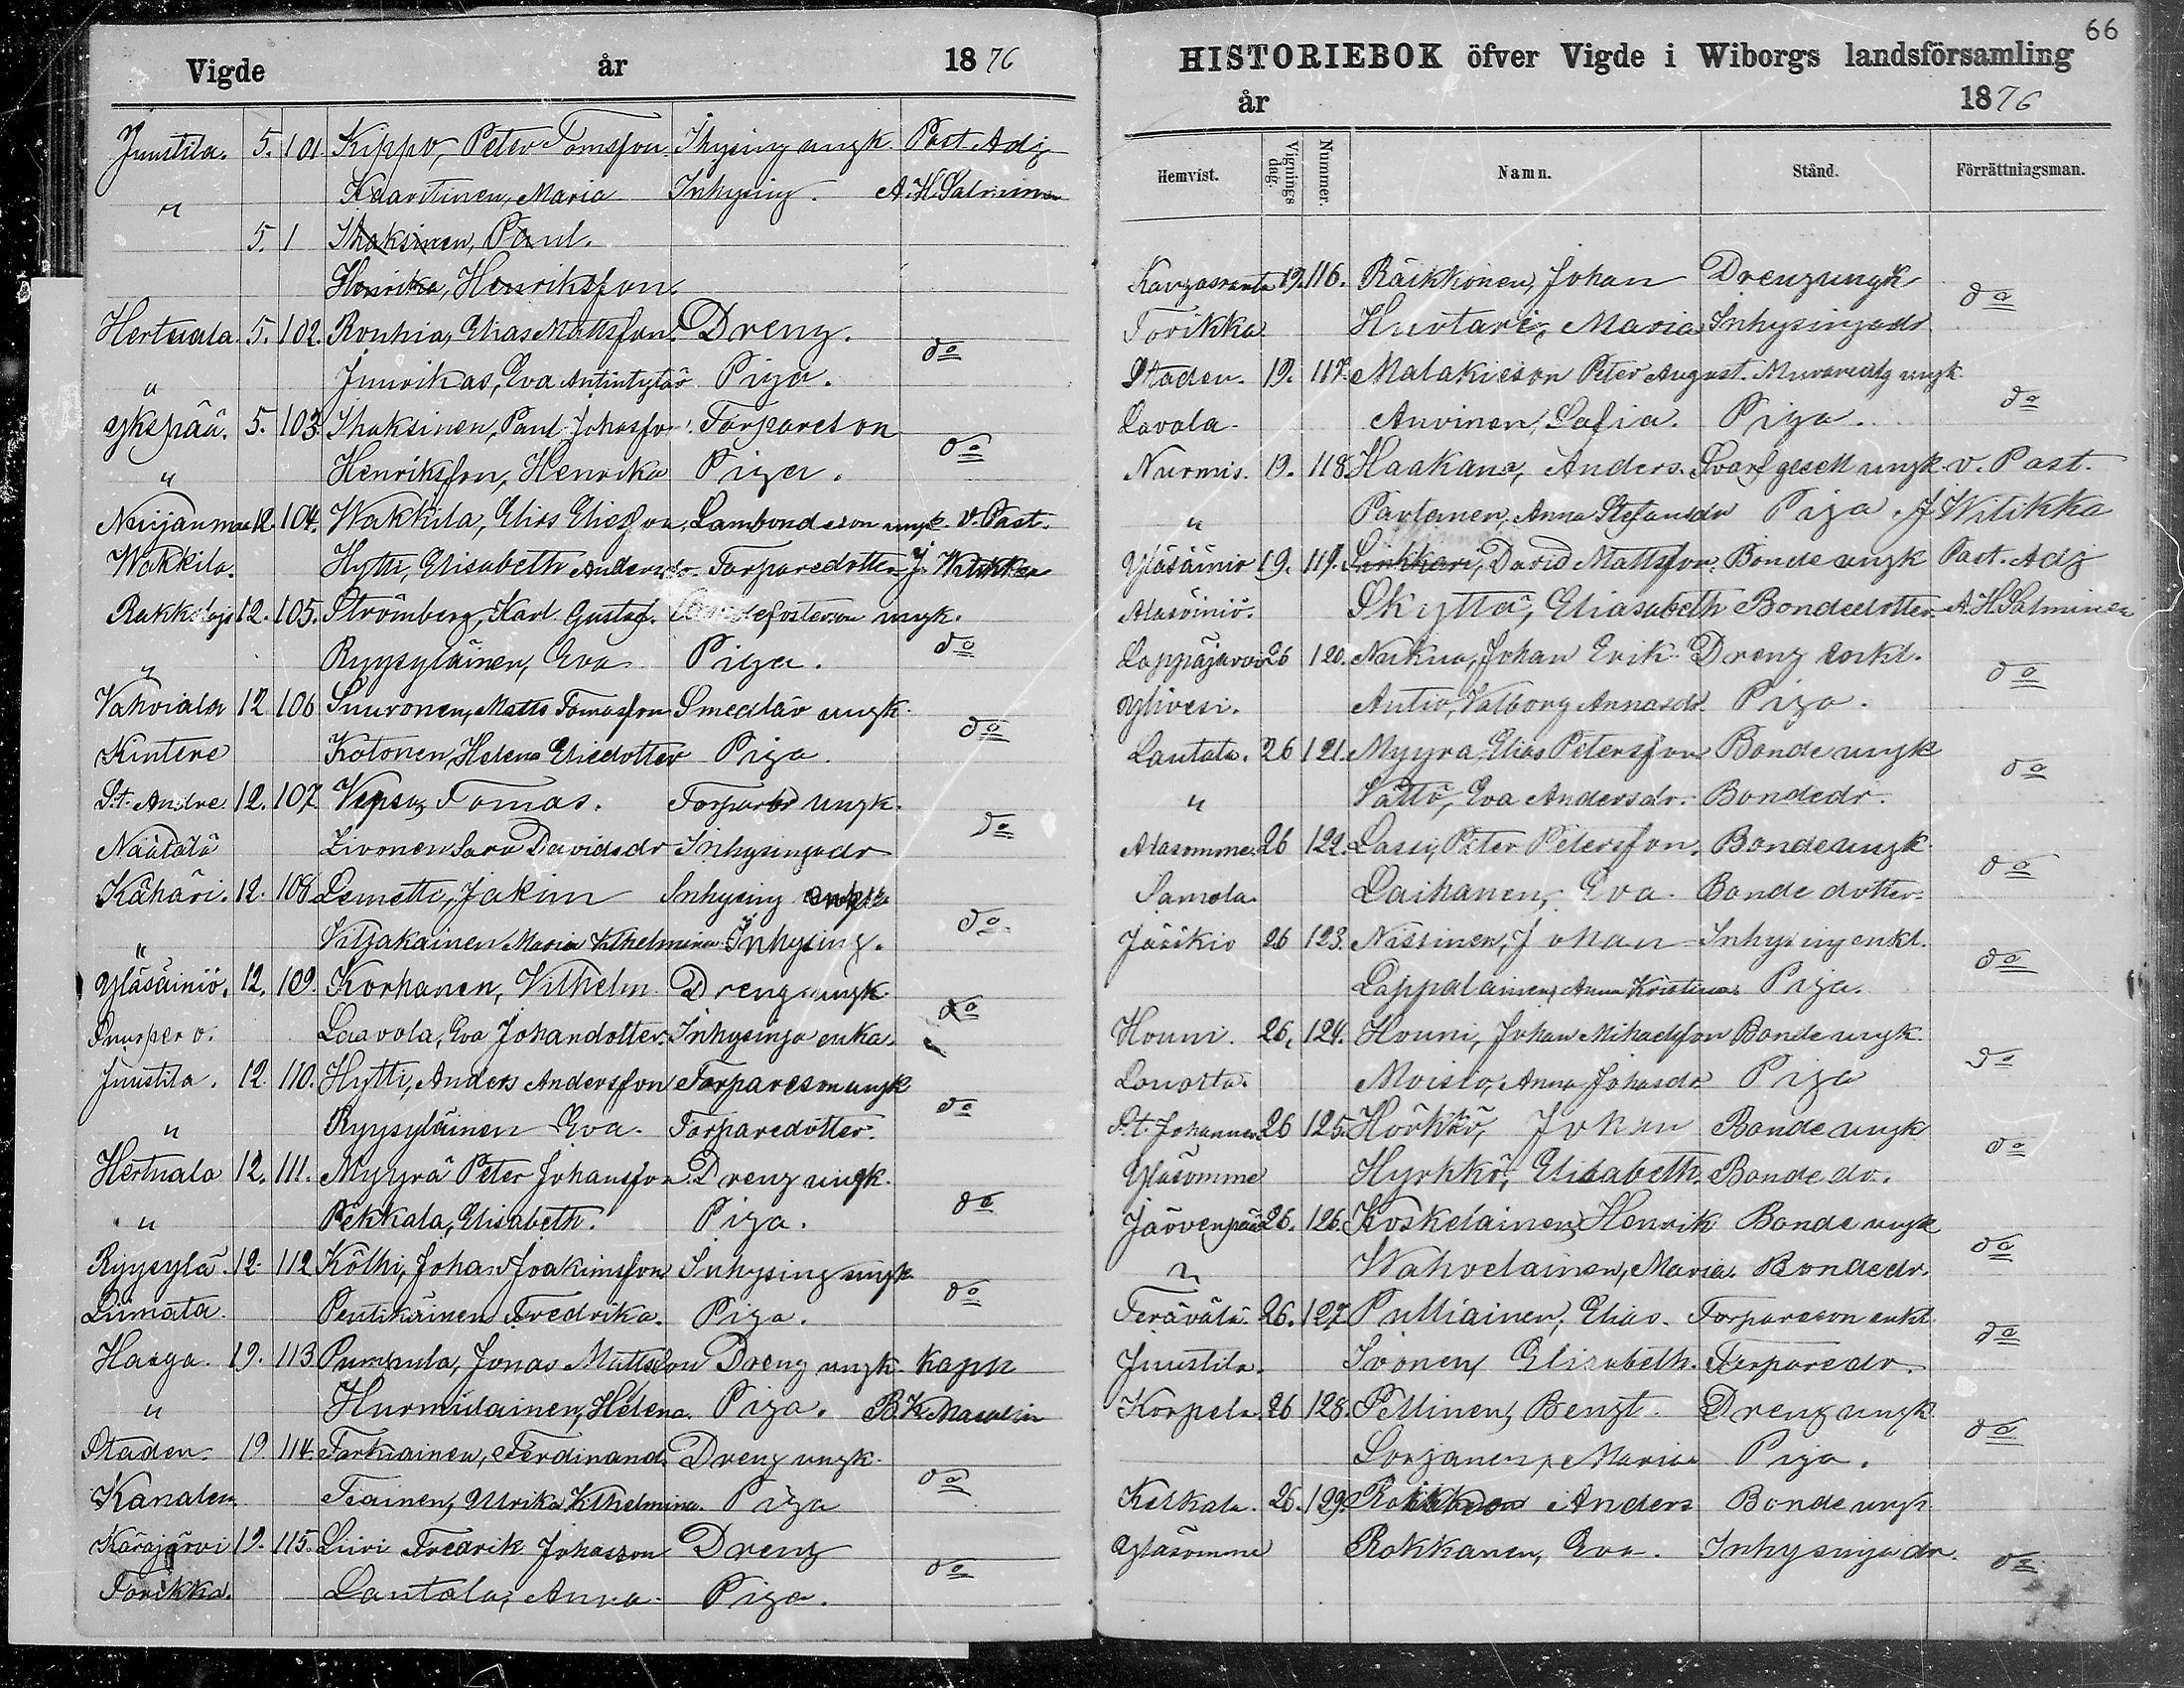 Vigde år 1876
Juustila. 5. 101 Kippo, Peter Tomsson Ihysing ungk. Past. Adj
" Kaartinen, Maria Inhysing. A. H. Salminen
5. 1 Ihaksinen, Paul.
Henrika, Henriksson.
Hertuala. 5. 102. Ronhia, Elias Mattsson. Dreng. do
" Junrikas, Eva Antintytär Piga.
Ykspää. 5. 103. Ihaksinen, Paul Johasson. Torpareson do
" Henriksson, Henrika Piga.
Nuijanmaa 12. 104. Wakkila, Elias Eliasson, Lambondeson ungk. v. Past.
Wakkila. Hytti, Elisabeth Andersdr. Torparedotter J. Witikka
12. 105. Strömberg, Karl Gustaf. ungk. do
" Ryysyläinen, Eva Piga.
Vahviala 12 106 Suuronen, Matts Tomasson Smedlär ungk. do
Kintere Kotonen, Helena Eliedotter Piga.
St. Andre 12. 107 Vepsä, Tomas. Torpare ungk. do
Näätälä Livonen Sara Davidsdr Inhysingedr
Kähäri. 12. 108 Demetti, Jakim Inhysing do
" Vitjakainen Maria Vilhelmina Inhysing.
Yläsäiniö. 12. 109. Korhanen, Vilhelm Dreng ungk. do
Laavola, Eva Johandotter. Inhysinge enka.
Juustila. 12. 110. Hytti, Anders Andersson Torpareson ungk do
" Ryysyläinen Eva. Torparedotter.
Hertuala 12. 111. Myyrä Peter Johansson Dreng ungk. do
" Pekkala, Elisabeth. Piga.
Ryysylä. 12. 112 Kölhi, Johan Joakimsson Inhysing ungk. do
Liimata. Pentikäinen Fredrika. Piga.
Haaga. 19. 113 Pumpula, Jonas Mattsson Dreng ungk. Kapn
" Hurmulainen, Helena. Piga. B. K. Masalin
Staden. 19. 114. Tarkiainen, Ferdinand. Dreng ungk. do
Kanalen Tiainen, Ulrika Vilhelmina. Piga
Kärajärvi 19. 115. Liiri Fredrik Johasson Dreng do
Torikka. Lautala, Anna. Piga.
66
HISTORIEBOK öfver Vigde i Wiborgs landsförsamling
år 1876
Hemvist. Vignings dag. Nummer. Namn. Stånd. Förrättningsman.
Kangasranta 19. 116. Räikkönen, Johan Drengungk do
Torikka Hurtari, Maria Inhysingedr
Staden. 19. 117. Malakieson Peter August. ungk. do
Lavola. Auvinen, Sofia. Piga.
Nurmis. 19. 118. Haakana, Anders. Svarfgesell ungk. v. Past.
" Partanen, Anna Stefansdr Piga. J. Witikka
Yläsäiniö 19. 119. Sinkkari, David Mattsson. Bonde ungk Past. Adj
Alasäiniö. Skyttä, Eliasabeth Bondedotter. A. H. Salminen
Lappäjärvi 26 120. Nukua, Johan Erik Dreng enkl. do
Ylivesi. Autio, Valborg Annasdr. Piga.
Lautala. 26 121. Myyra, Elias Petersson Bonde ungk do
" Sättö, Eva Andersdr. Bondedr.
Alasomme. 26 122. Lassi, Peter Petersson. Bonde ungk do
Samola. Laihanen, Eva. Bonde dotter.
Jääskis 26 123. Nissinen, Johan Inhysing enkl. do
Lappalainen, Anna Kristina. Piga.
Houni. 26. 124. Houni, Johan Mikaelsson Bonde ungk. do
Moisio, Anna Johasdr. Piga
St. Johannes 26 125. Hörkkö, Johan Bonde ungk do
Yläsomme Hyrkkö, Elisabeth. Bonde dr.
Järvenpää 26. 126. Koskelainen, Henrik Bonde ungk do
" Wahvelainen, Maria. Bondedr.
Terävälä. 26. 127. Pulliainen, Elias. Torpareson enkl. do
Juustila. Ivonen, Elisabeth. Torparedr.
Korpela. 26 128. Pellinen, Bengt. Dreng ungk. do
Sorjanen, Maria Piga.
Kelkala. 26. 129. Anders Bonde ungk
Yläsomme Rokkanen, Eva. Inhysinge dr. do